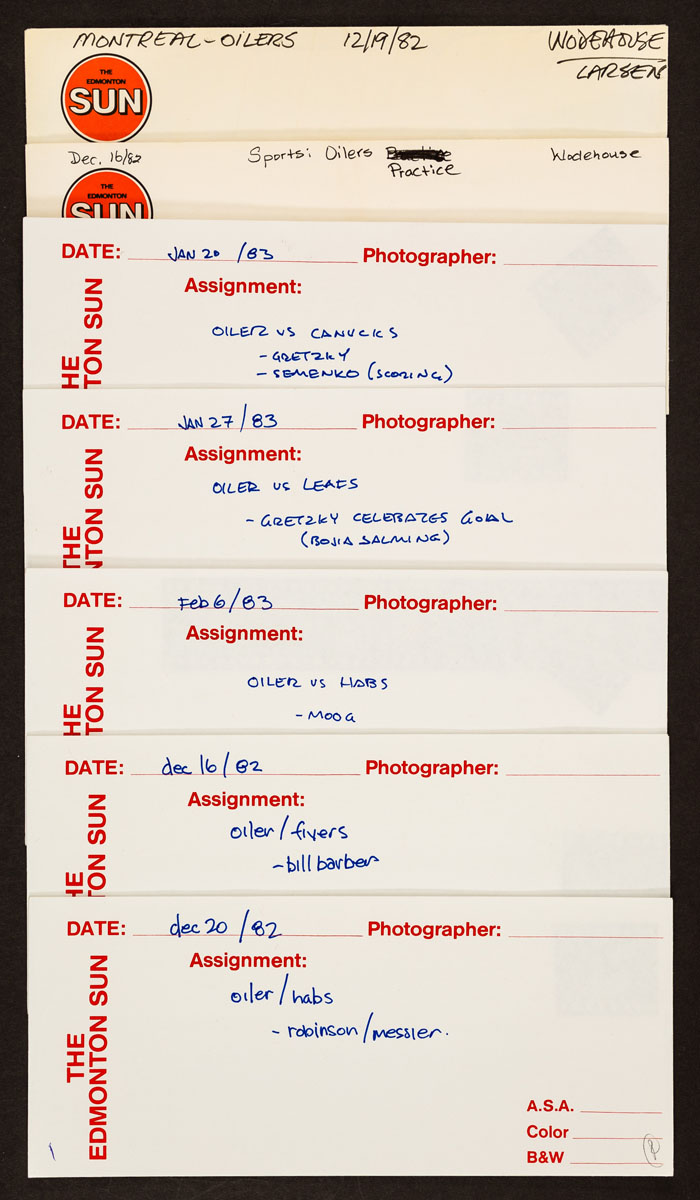 MONTREAL-OILERS 12/19/82 WODEHOUSE
LARSEN
THE
EDMONTON
SUN
Dec. 16/82 Sports: Oilers Practice Wodehouse
Practice
THE
EDMONTON
SUN
DATE: JAN 20 /83 Photographer:
Assignment:
HE
TON SUN
OILER VS CANUCKS
- GRETZKY
- SEMENKO (SCORING)
DATE: JAN 27/83 Photographer:
Assignment:
THE
NTON SUN
OILER VS LEAFS
- GRETZKY CELEBRATES GOAL
(BOJIA SALMING)
DATE: Feb 6/83 Photographer:
Assignment:
HE
TON SUN
OILER VS HABS
- MOOG
DATE: dec 16/82 Photographer:
Assignment:
HE
TON SUN
oiler/flyers
- bill barber
DATE: dec 20 /82 Photographer:
Assignment:
THE
EDMONTON SUN
oiler/habs
- robinson/messier.
A.S.A.
Color
B&W